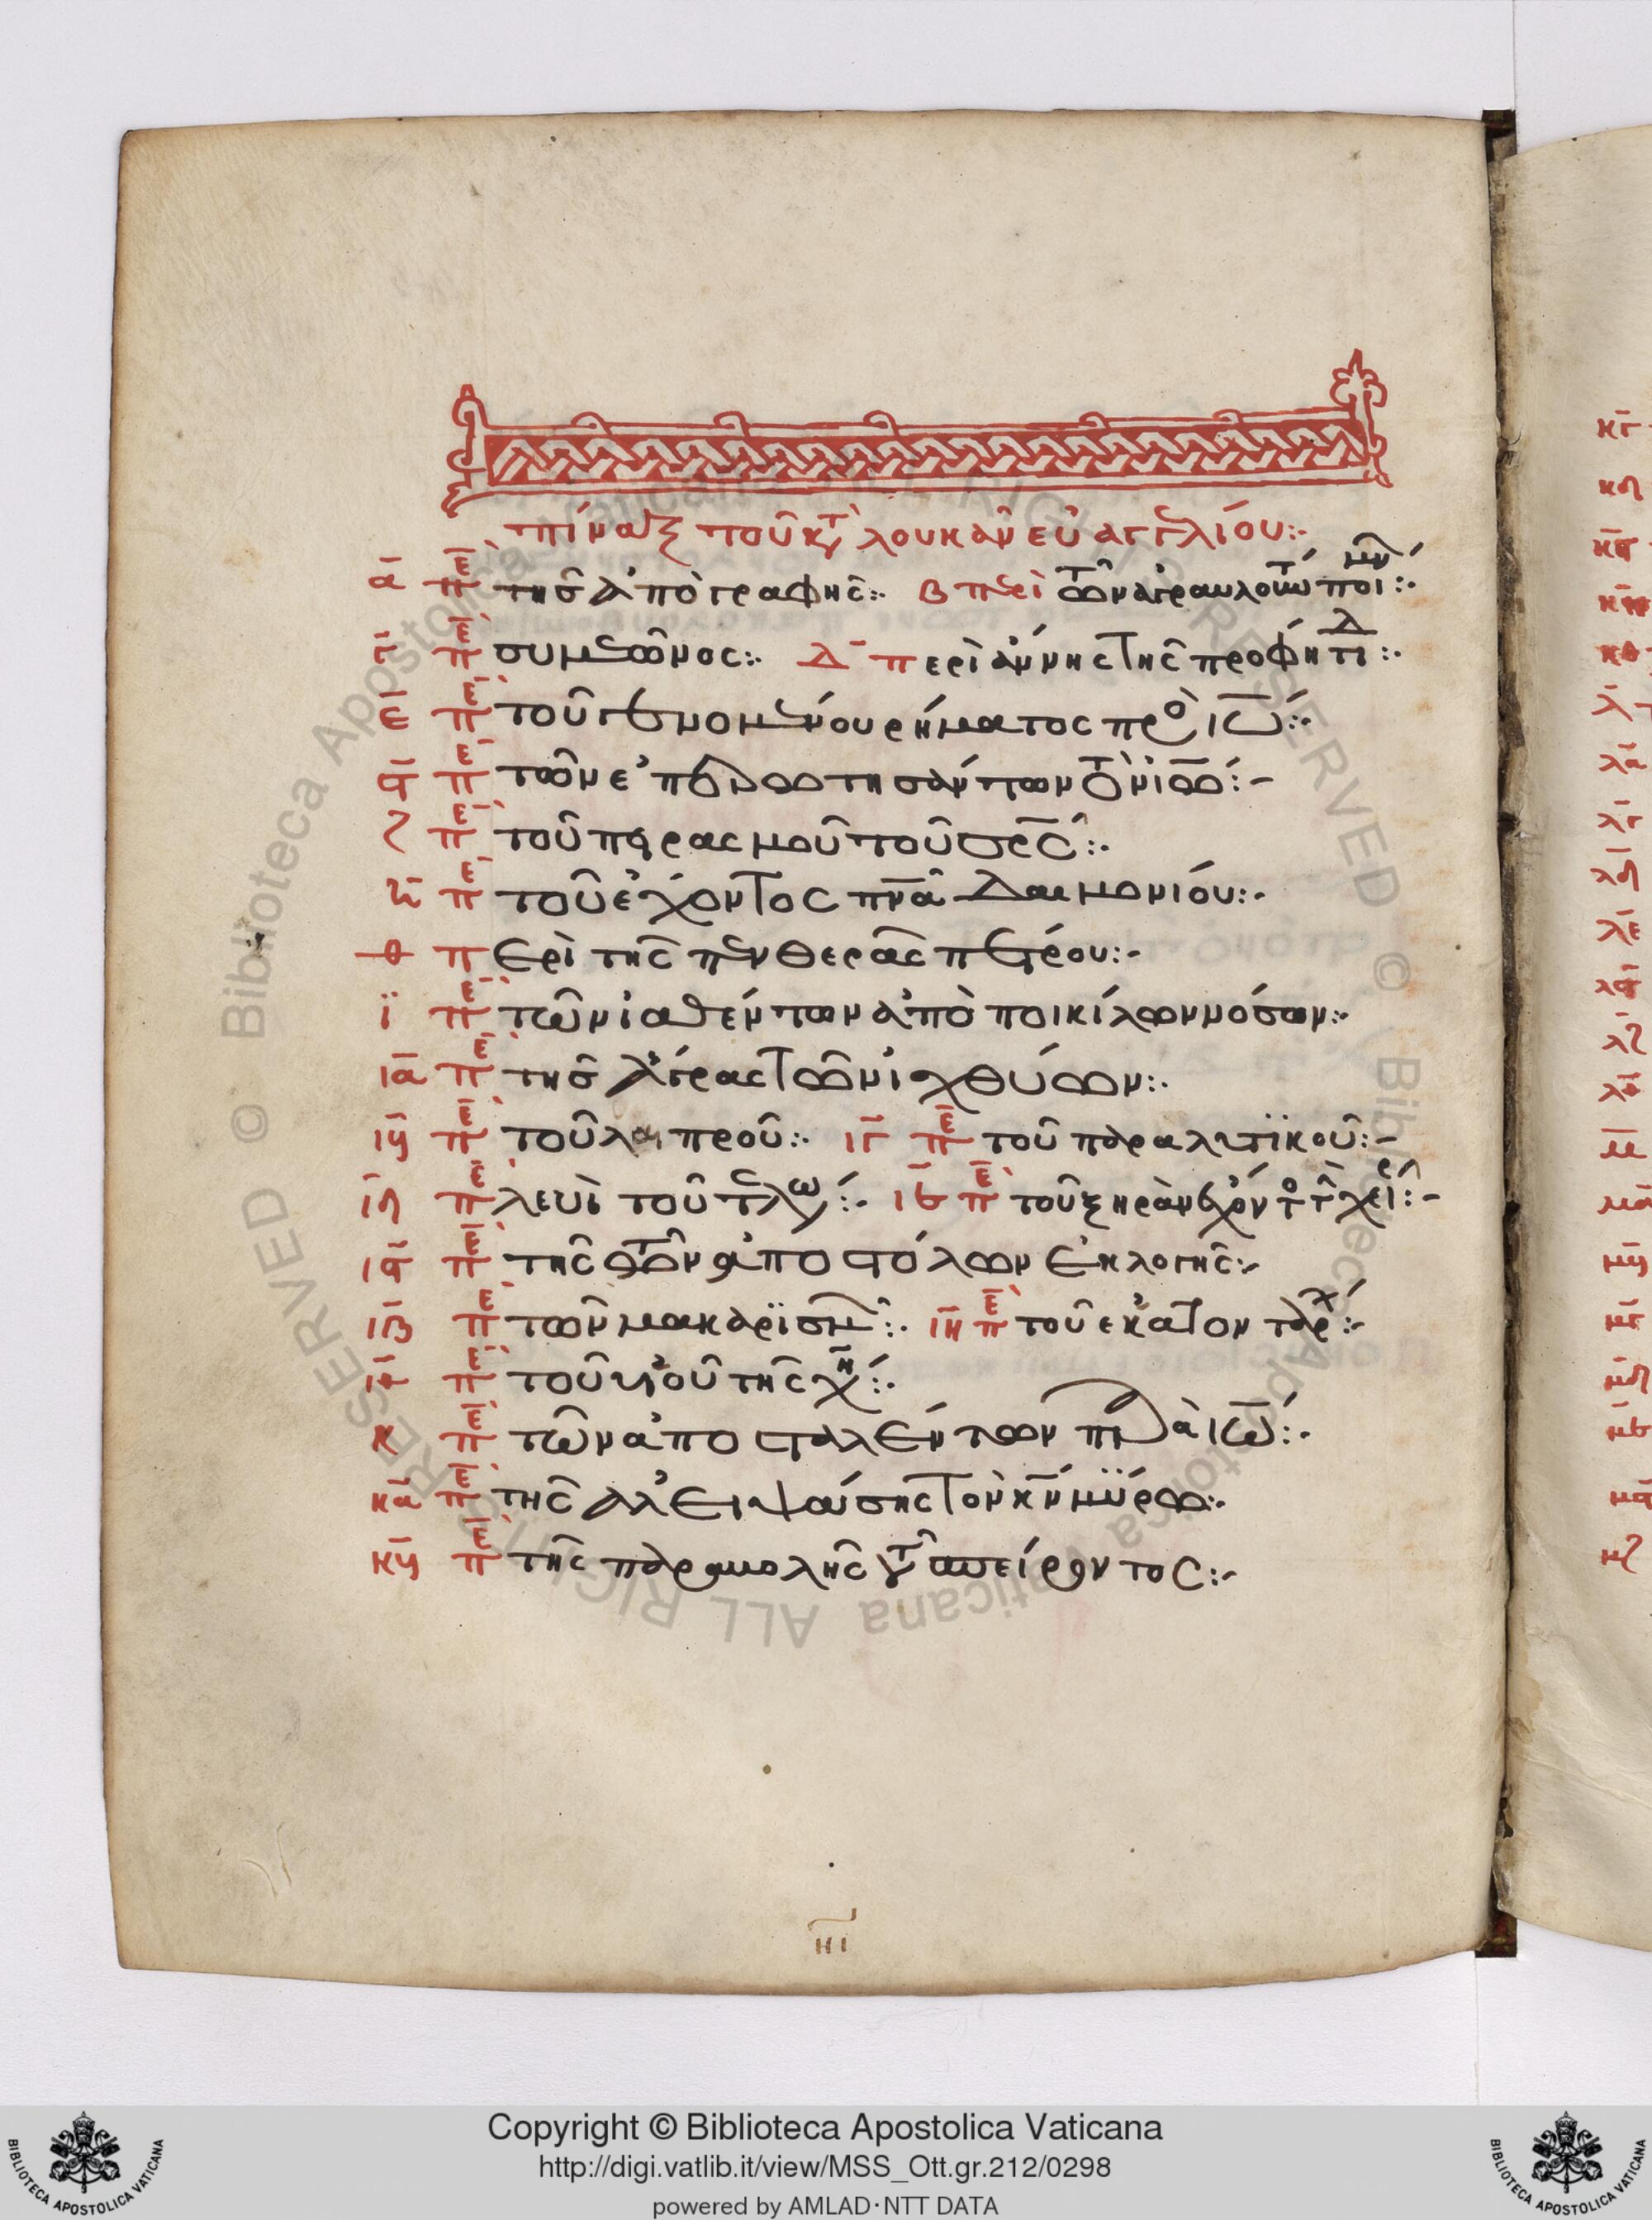 πίναξ τοῦ κτ λουκὰν εὐαγγελίου:·
α πε τῆς ἀπογραφῆς:· β περὶ τῶν ἀγραυλούντ ποιμν:·
γ πε συμεῶνος:· δ περὶ ἄννης τῆς προφήτιδ:·
ε πε τοῦ γενομένου ρήματος πρὸ ιω:·
ϛ πε τῶν ἐπερωτησάντων τὸν ιω:-
ζ πε τοῦ πειρασμοῦ τοῦ σρς:·
η πε τοῦ ἔχοντος πνα δαιμονίου:·
θ περὶ τῆς πενθερᾶς πέτρου:·
ι πε τῶν ἰαθέντων ἀπὸ ποικίλων νόσων:·
ια πε τῆς ἄγρας τῶν ἰχθύων:·
ιβ πε τοῦ λεπροῦ:· ιγ πε τοῦ παραλυτικοῦ:-
ιδ πε λευὶ τοῦ τελω:· ιε πε τοῦ ξηρὰν ἔχοντο τ χεῖρ:-
ιϛ πε τῆς τῶν ἀποστόλων ἐκλογῆς:·
ιζ πε τῶν μακαρϊσμ:· ιη πε τοῦ ἑκατοντάρχ:-
ιθ πε τοῦ υἱοῦ τῆς χη:·
κ πε τῶν ἀποσταλέντων παρὰ ιω:·
κα πε τῆς ἀλειψάσης τὸν κν μύρω:·
κβ πε τῆς παραβολῆς τ σπείροντος:-
ηι
Copyright © Biblioteca Apostolica Vaticana
http://digi.vatlib.it/view/MSS_Ott.gr.212/0298
powered by AMLAD·NTT DATA
BIBLIOTECA APOSTOLICA VATICANA
BIBLIOTECA APOSTOLICA VATICANA